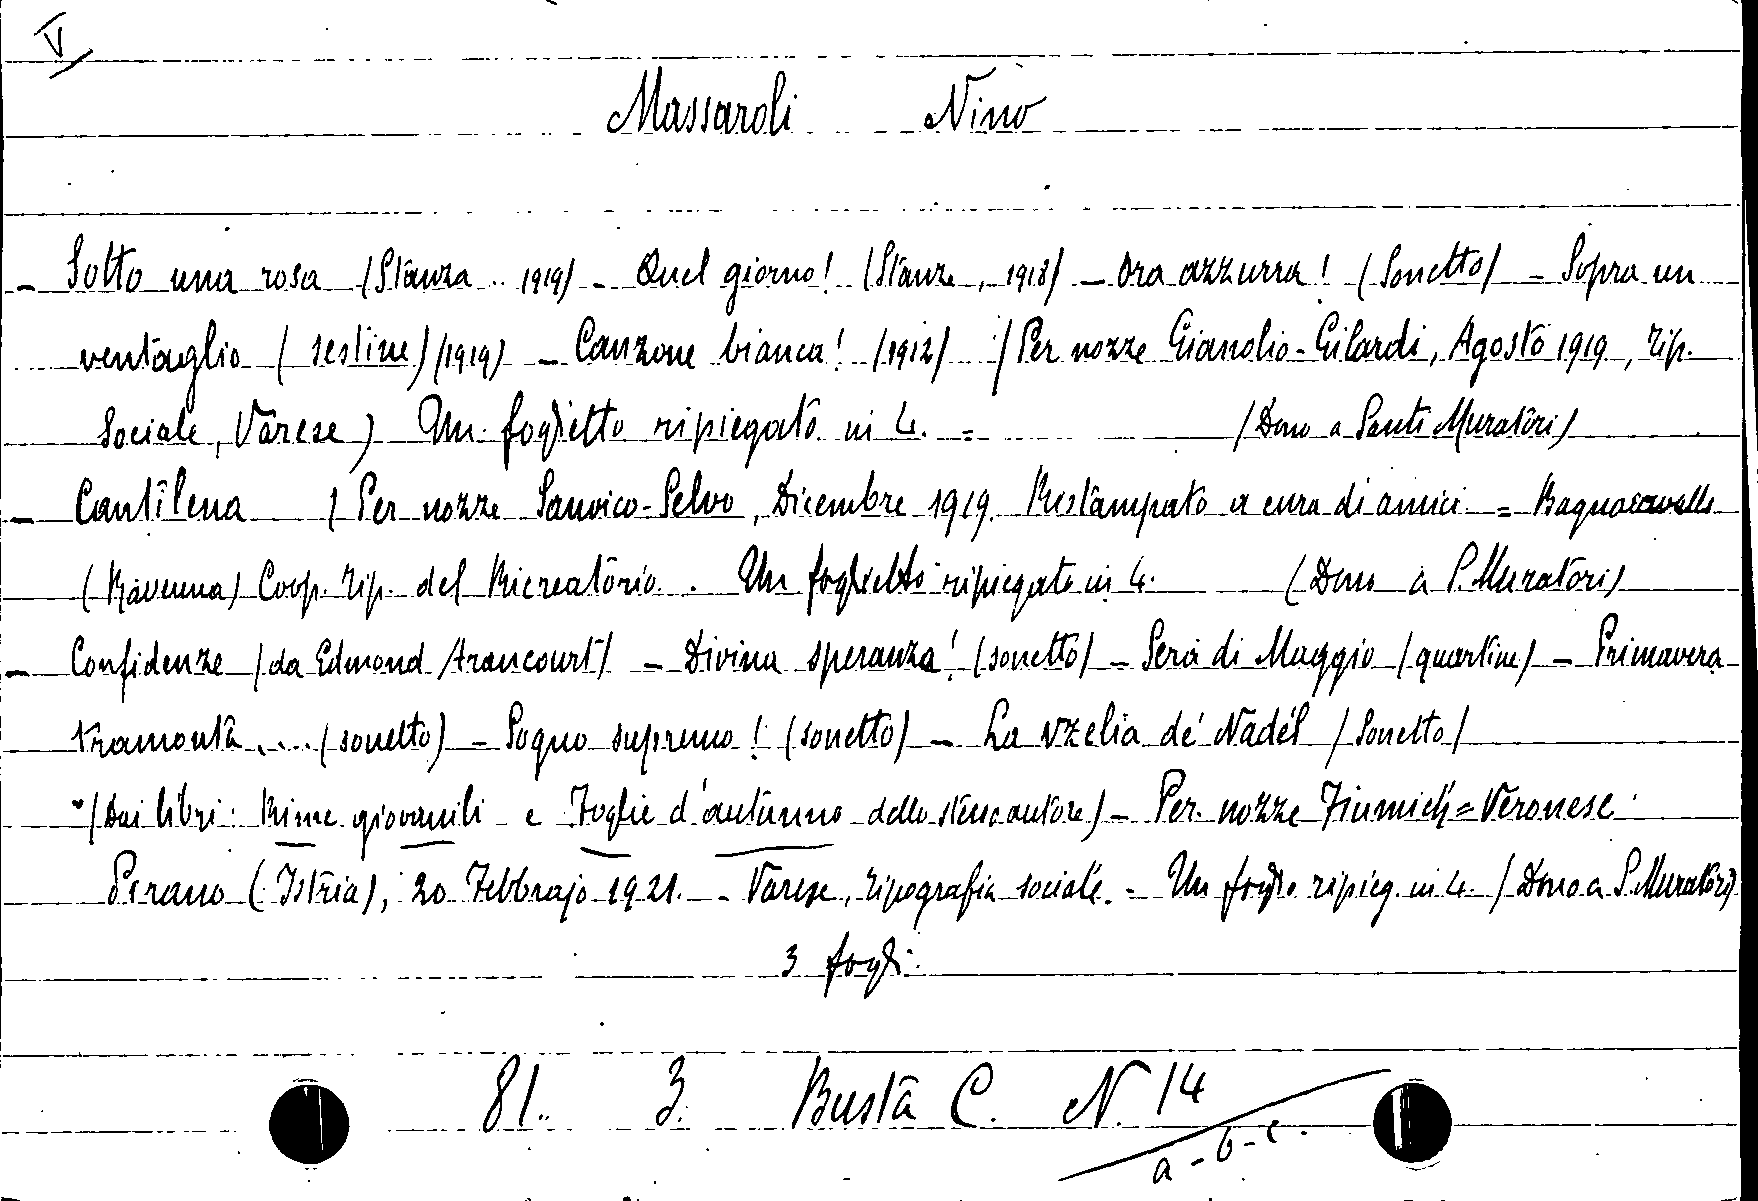 V
Massaroli Nino
- Sotto una rosa (Stanza .. 1919) - Quel giorno! (Stanze, 1918) - Ora azzurra! (Sonetto) - Sopra un
ventaglio (sestine) (1919) - Canzone bianca! (1912) (Per nozze Gianolio-Gilardi, Agosto 1919, Tip.
Sociale, Varese) Un foglietto ripiegato in 4. = (Dono a Santi Muratori)
- Cantilena (Per nozze Sanvico-Selvo, Dicembre 1919. Ristampato a cura di amici = Bagnacavallo
(Ravenna) Coop. Tip. del Ricreatorio. . Un foglietto ripiegato in 4. (Dono a S. Muratori)
- Confidenze (da Edmond Arancourt) - Divina speranza! (sonetto) - Sera di Maggio (quartine) - Primavera
tramonta .... (sonetto) - Sogno supremo! (sonetto) - La vzelia de' Nadél (Sonetto)
(Dai libri: Rime giovanili e Foglie d'autunno dello stesso autore) - Per nozze Fiumich = Veronese
Pirano (Istria), 20 Febbrajo 1921. - Varese, tipografia sociale. - Un foglio ripieg. in 4. (Dono a S. Muratori)
3 fogli.
81. 3. Busta C. N. 14
a - b - c.